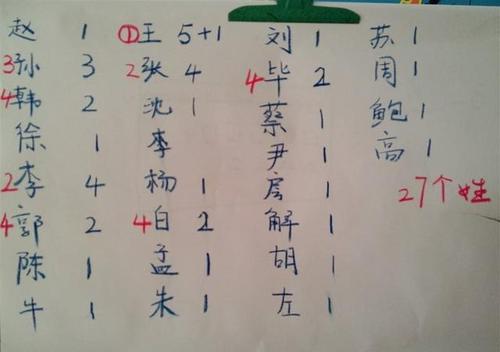 赵 1
3孙 3
4韩 2
徐 1
2李 4
4郭 2
陈 1
牛 1
①王 5+1
2张 4
沈 1
李
杨 1
4白 2
孟 1
朱 1
刘 1
4毕 2
蔡 1
尹 1
房 1
解 1
胡 1
左 1
苏 1
周 1
鲍 1
高 1
27个姓